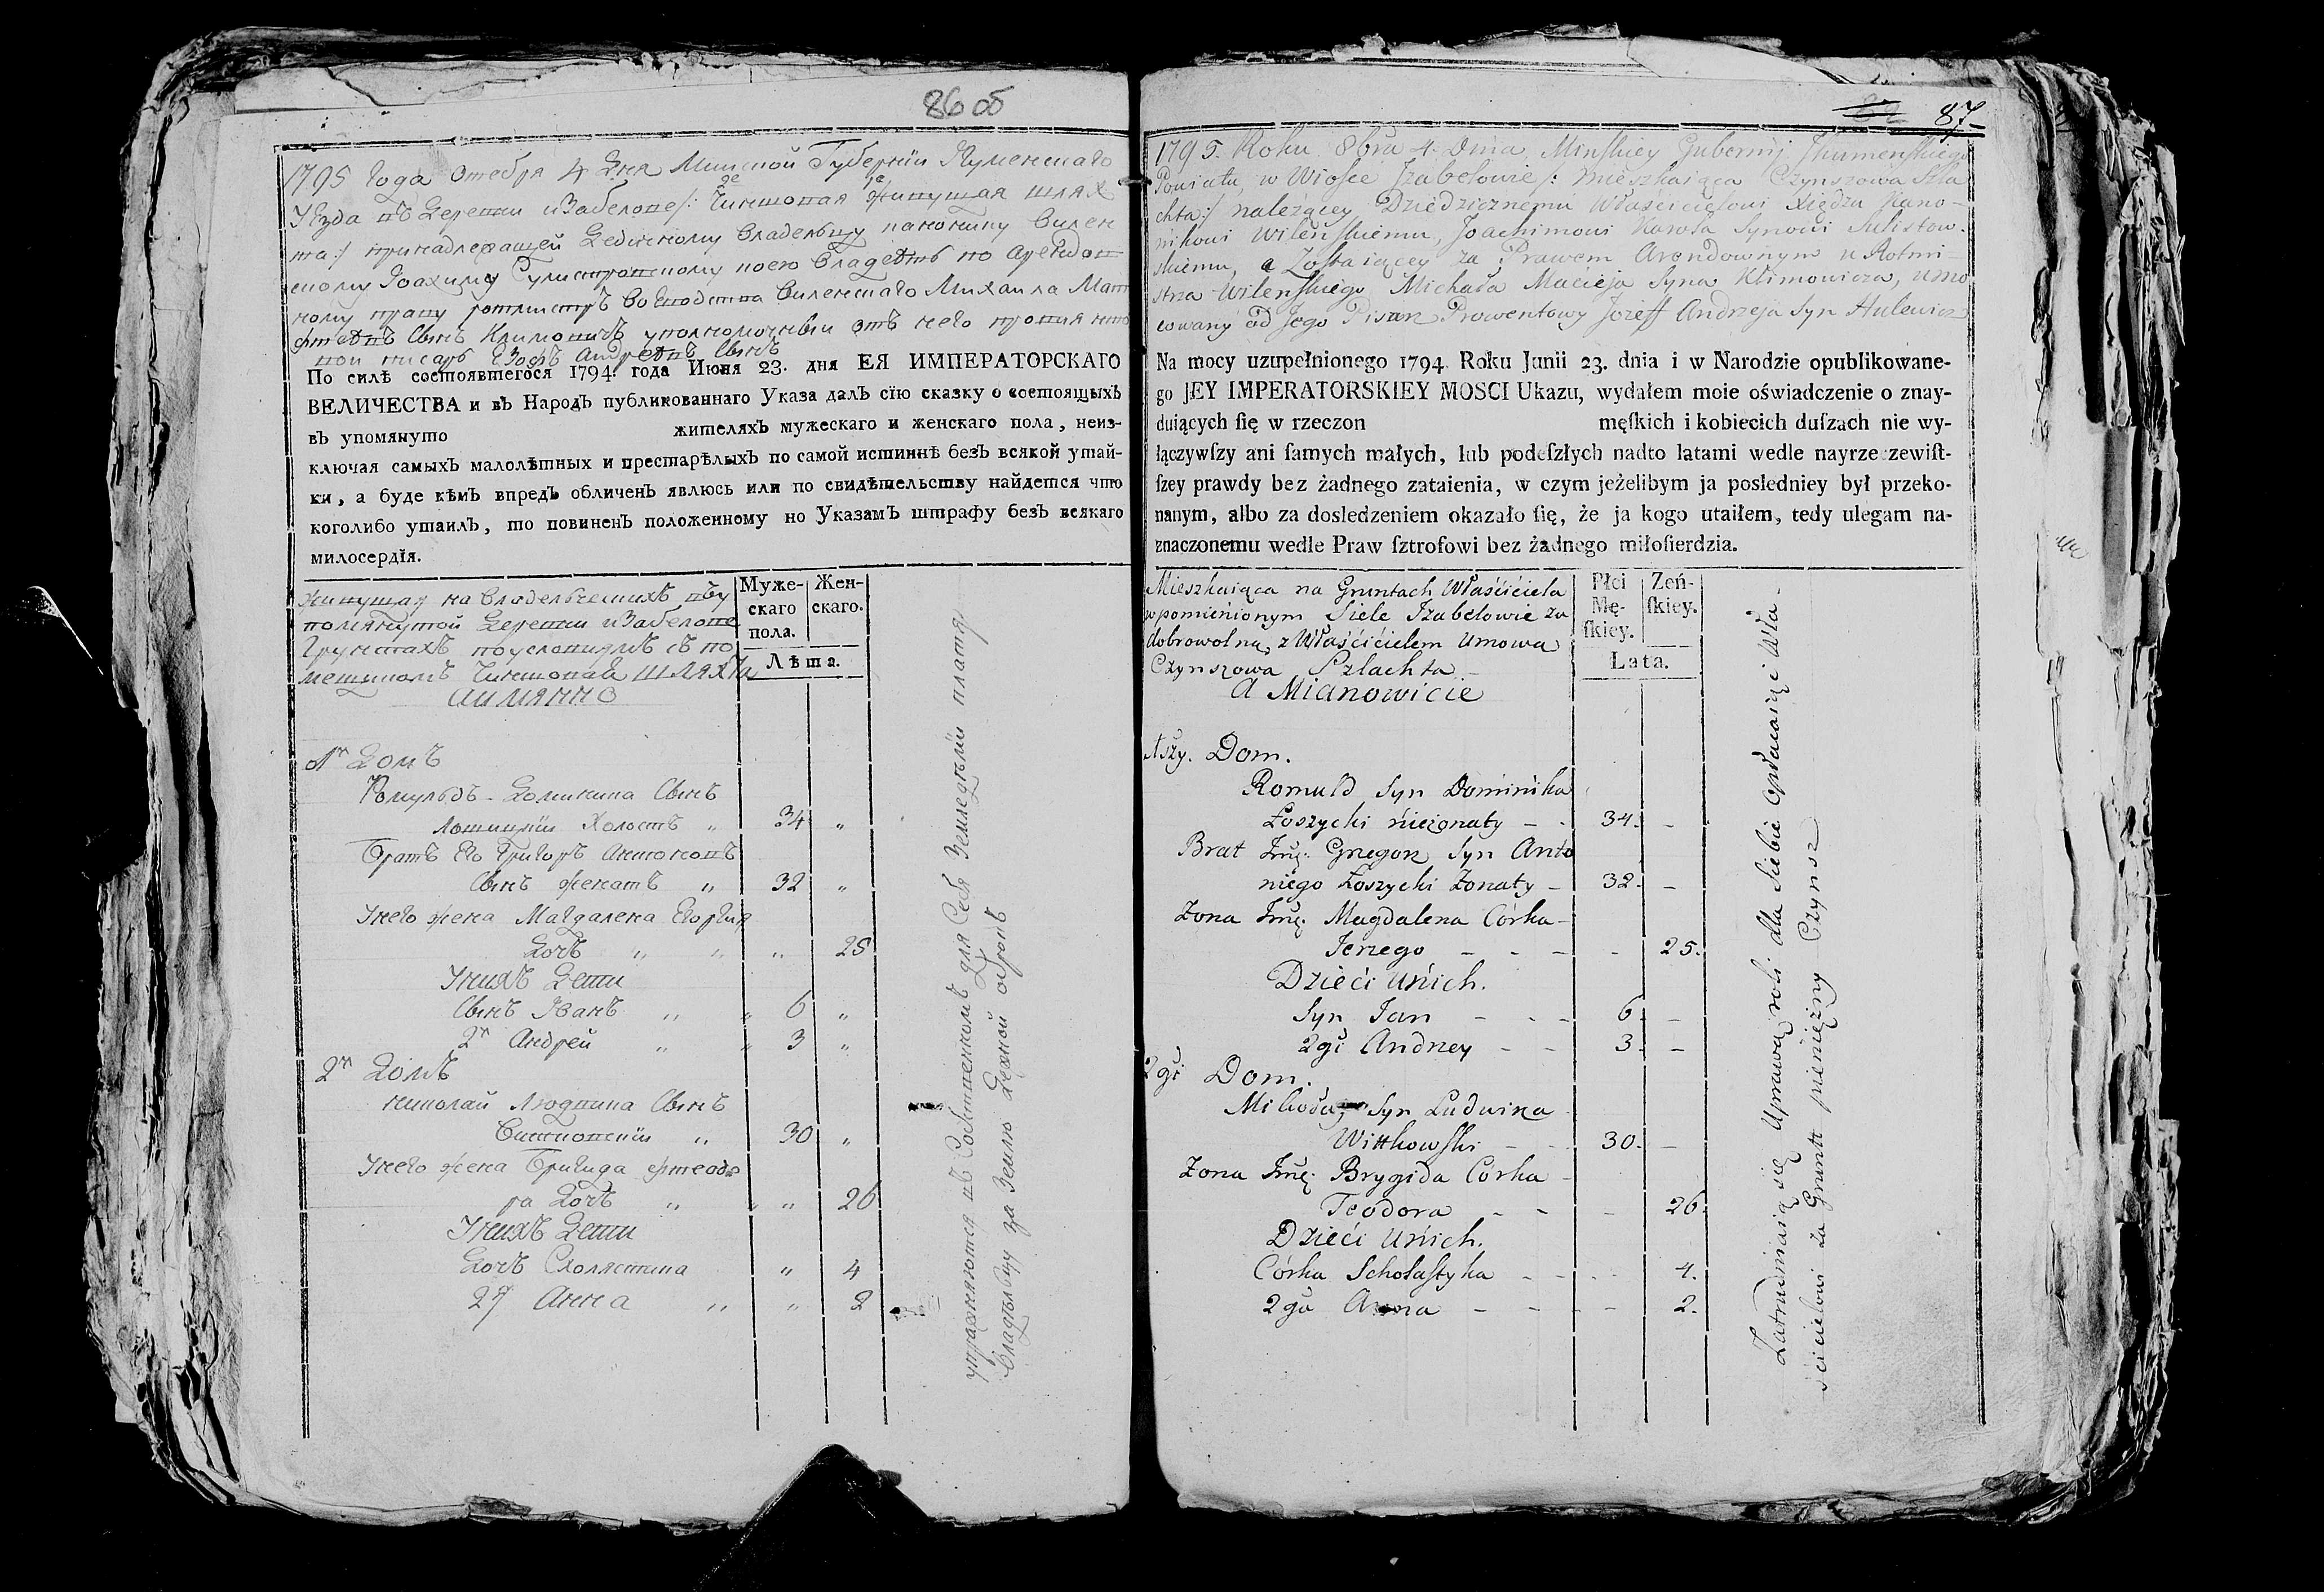 86 об
1795 года октебря 4 дня Минской Губернїи Игуменскаго
Уезда въ деревни изабелове/: Чиншовая живущая шлях
та:/ принадлежащей Владельцу канонику Вилен
скому Іоахиму Сулистровскому по Арендов
ному праву ротмистръ Воеводства Виленскаго Михаила Мат
Сынъ Климовичъ уполномочный отъ него
писарь Езофъ Андреевъ Сынъ
По силѣ состоявшегося 1794 года Июня 23. дня ЕЯ ИМПЕРАТОРСКАГО
ВЕЛИЧЕСТВА и въ Народъ публикованнаго Указа далъ сїю сказку о состоящыхъ
въ упомянуто жителяхъ мужескаго и женскаго пола, неиз-
ключая самыхъ малолѣтныхъ и престарѣлыхъ по самой истиннѣ безъ всякой утай-
ки, а буде кѣмъ впредъ обличенъ явлюсь или по свидѣтельству найдется что
коголибо утаилъ, то повиненъ положенному по Указамъ штрафу безъ всякаго
милосердїя.
живущая на владельческихъ въ у
помянутой деревни изабелове
Грунтахъ по условиямъ съ по
мещикомъ Чиншовая шляхта
аимянно
Муже-
скаго
пола.
Жен-
скаго.
Лѣта.
1й домъ
Ромульдъ Доминика Сынъ
Лошицкїи Холостъ " 34 "
Братъ Его Григоръ Антоновъ
Сынъ женатъ " 32 "
Унего жена Магдалена Георгия
дочъ " " " 25
Унихъ дети
Сынъ Иванъ " " 6 "
2й Андрей " " 3 "
2й домъ
николай Людвика Сынъ
Витковскїи " 30 "
Унего жена Бригида фтеодо
ра дочъ " " " 26
Унихъ дети
дочъ Схолястика " 4
2я Анна " " 2
упражняются въ Собственномъ для Себя Земледелїи платя
Владѣльцу за Землю денжной оброкъ
87
1795. Roku 8bra 4. Dnia Minſkiey Gubernij Ihumenſkiego
Powiatu w Wiosce Izabelowie /: mieszkaiąca Czynszowa Szla
chta:/ należącey Dziedzicznemu Właścicielowi Xiędzu Kano-
nikowi Wilenſkiemu, Joachimowi Karola Synowi Sulistrow-
skiemu, a Zostaiącey za Prawem Arendownym u Rotmi-
strza Wilenſkiego Michała Macieja Syna Klimowicza, umo
cowany od Jego Pisarz Prowentowy Jozeff Andrzeja Syn Hulewicz
Na mocy uzupełnionego 1794. Roku Junii 23. dnia i w Narodzie opublikowane-
go JEY IMPERATORSKIEY MOSCI Ukazu, wydałem moie oświadczenie o znay-
duiących ſię w rzeczon męſkich i kobiecich duſzach nie wy-
łączywſzy ani ſamych małych, lub podeſzłych nadto latami wedle nayrzeczewiſt-
ſzey prawdy bez żadnego zataienia, w czym jeżelibym ja posledniey był przeko-
nanym, albo za dosledzeniem okazało ſię, że ja kogo utaiłem, tedy ulegam na-
znaczonemu wedle Praw ſztrofowi bez żadnego miłoſierdzia.
Mieszkaiąca na Gruntach Właściciela
w pomienionym Siele Izabelowie za
dobrowolną z Właścicielem umową
Czynszowa Szlachta
A Mianowicie
Płci
Mę-
ſkiey.
Zeń-
ſkiey.
Lata.
1szy. Dom.
Romuld Syn Dominika
Łoszycki nieżonaty - - 34. -
Brat Imę: Gregorz Syn Anto
niego Łoszycki Żonaty - 32. -
Żona Imę: Magdalena Córka
Jerzego - - - - 25.
Dzieći unich.
Syn Jan - - - 6. -
2gi Andrzey - - 3. -
2gi Dom.
Mikołay Syn Ludwika
Wittkowſki - - 30. -
Żona Imę: Brygida Córka
Teodora - - - 26.
Dzieći unich.
Córka Scholaſtyka - - - - 4.
2ga Anna - - - - 2.
Zatrudniaią się Uprawą roli dla Siebie opłacaiąc Wła-
ścicielowi za Grunt pieniężny Czynsz